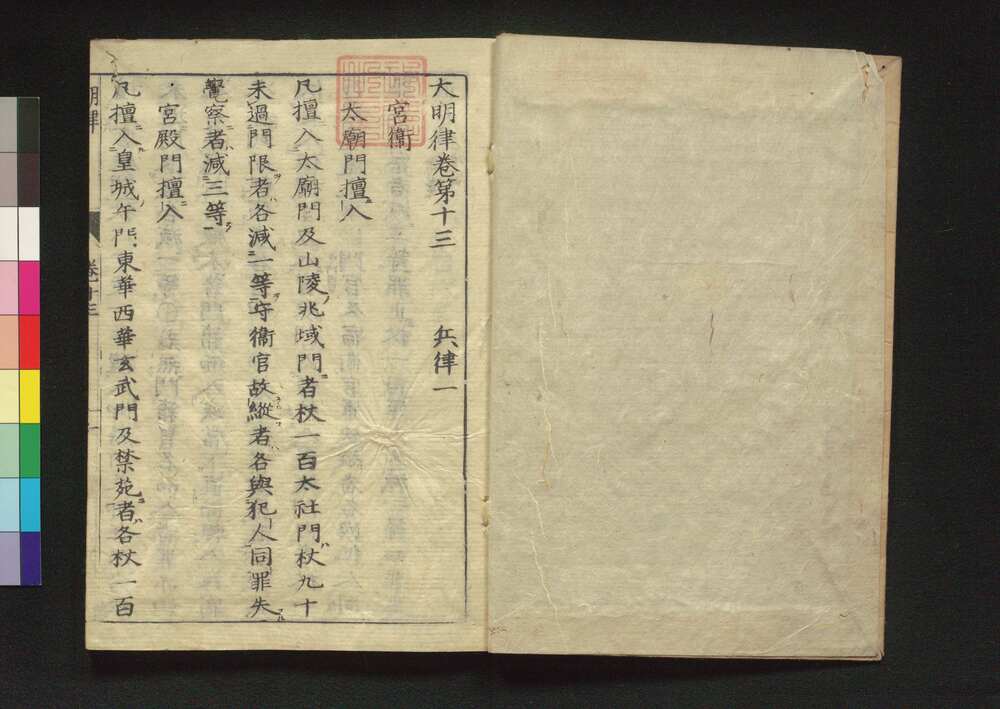 大明律卷第十三　兵律一
宮衞
太廟門擅入
凡擅入太廟門及山陵兆域門者杖一百太社門杖九十
未過門限者各減一等守衞官故縱者各與犯人同罪失
覺察者減三等
宮殿門擅入
凡擅入皇城午門東華西華玄武門及禁苑者各杖一百
明律
卷十三
一